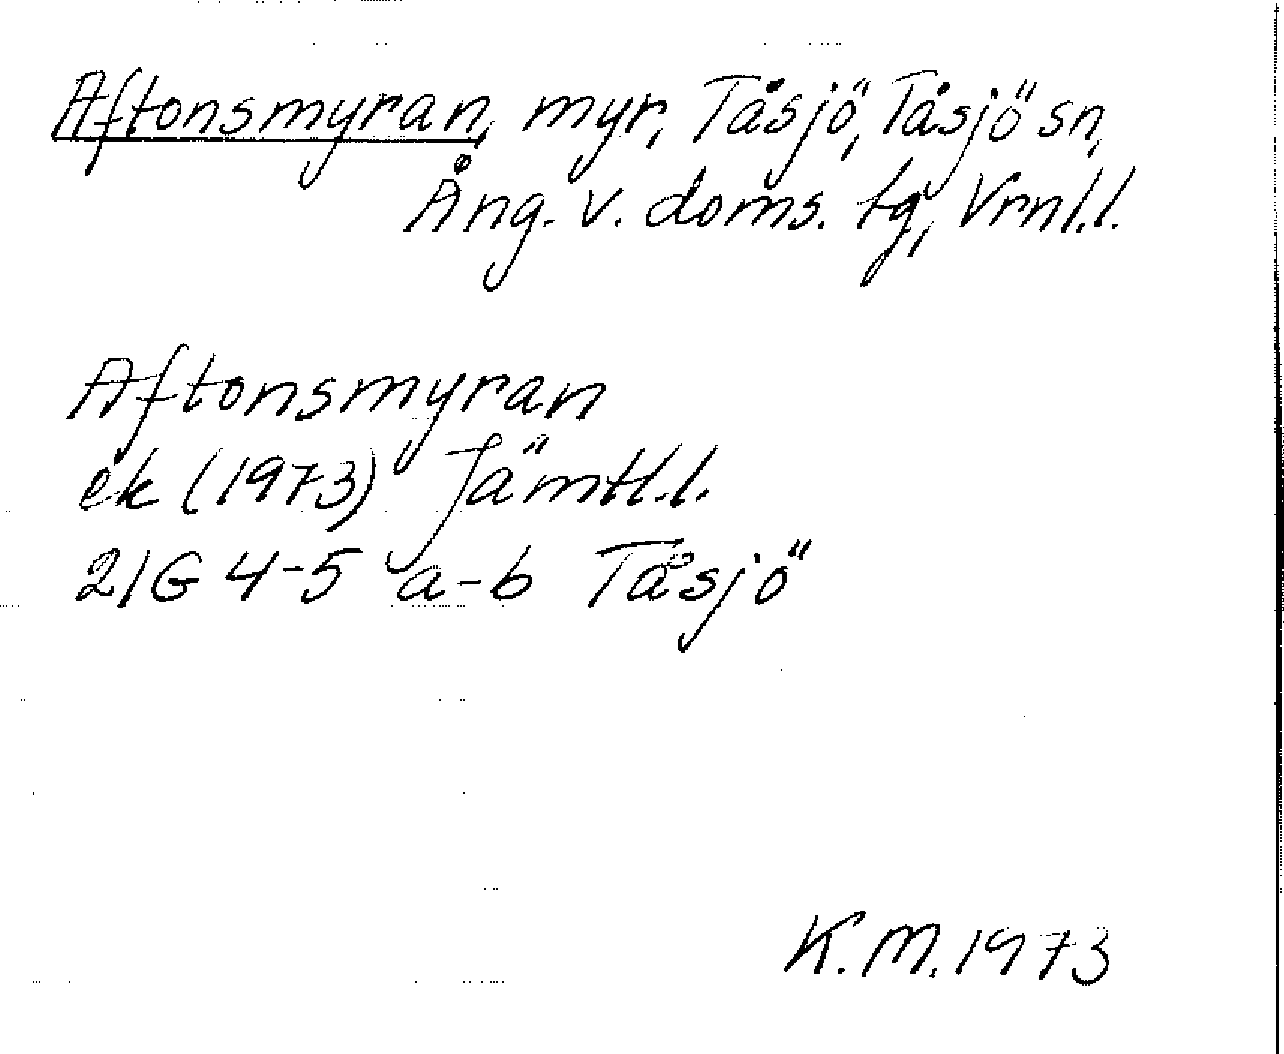 Aftonsmyran, myr, Tåsjö, Tåsjö sn,
Ång. v. doms. tg, Vrnl.l.
Aftonsmyran
ek (1973) Jämtl.l.
21G 4-5 a-b Tåsjö
K.M. 1973